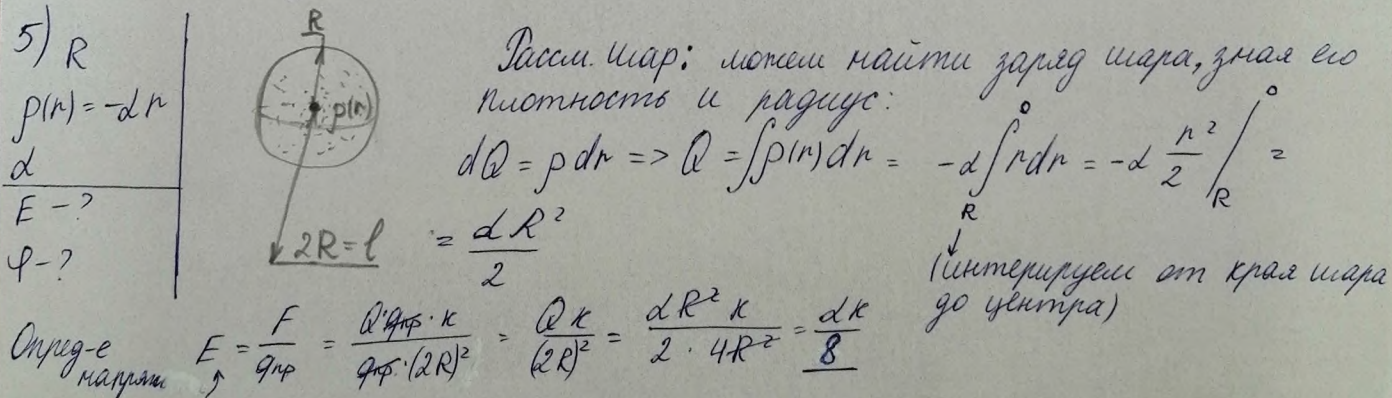 5) R
ρ(r) = -αr
α
E - ?
φ - ?
R
ρ(r)
2R = l
Рассм. шар: можем найти заряд шара, зная его
плотность и радиус:
dQ = ρdr => Q = ∫ρ(r)dr = -α∫_R^0 rdr = -α r²/2 |_R^0 =
= αR²/2
(интерируем от края шара
до центра)
Опред-е
напряж
E = F/qпр = Q·qпр·k/qпр·(2R)² = Qk/(2R)² = αR²k/2·4R² = αk/8